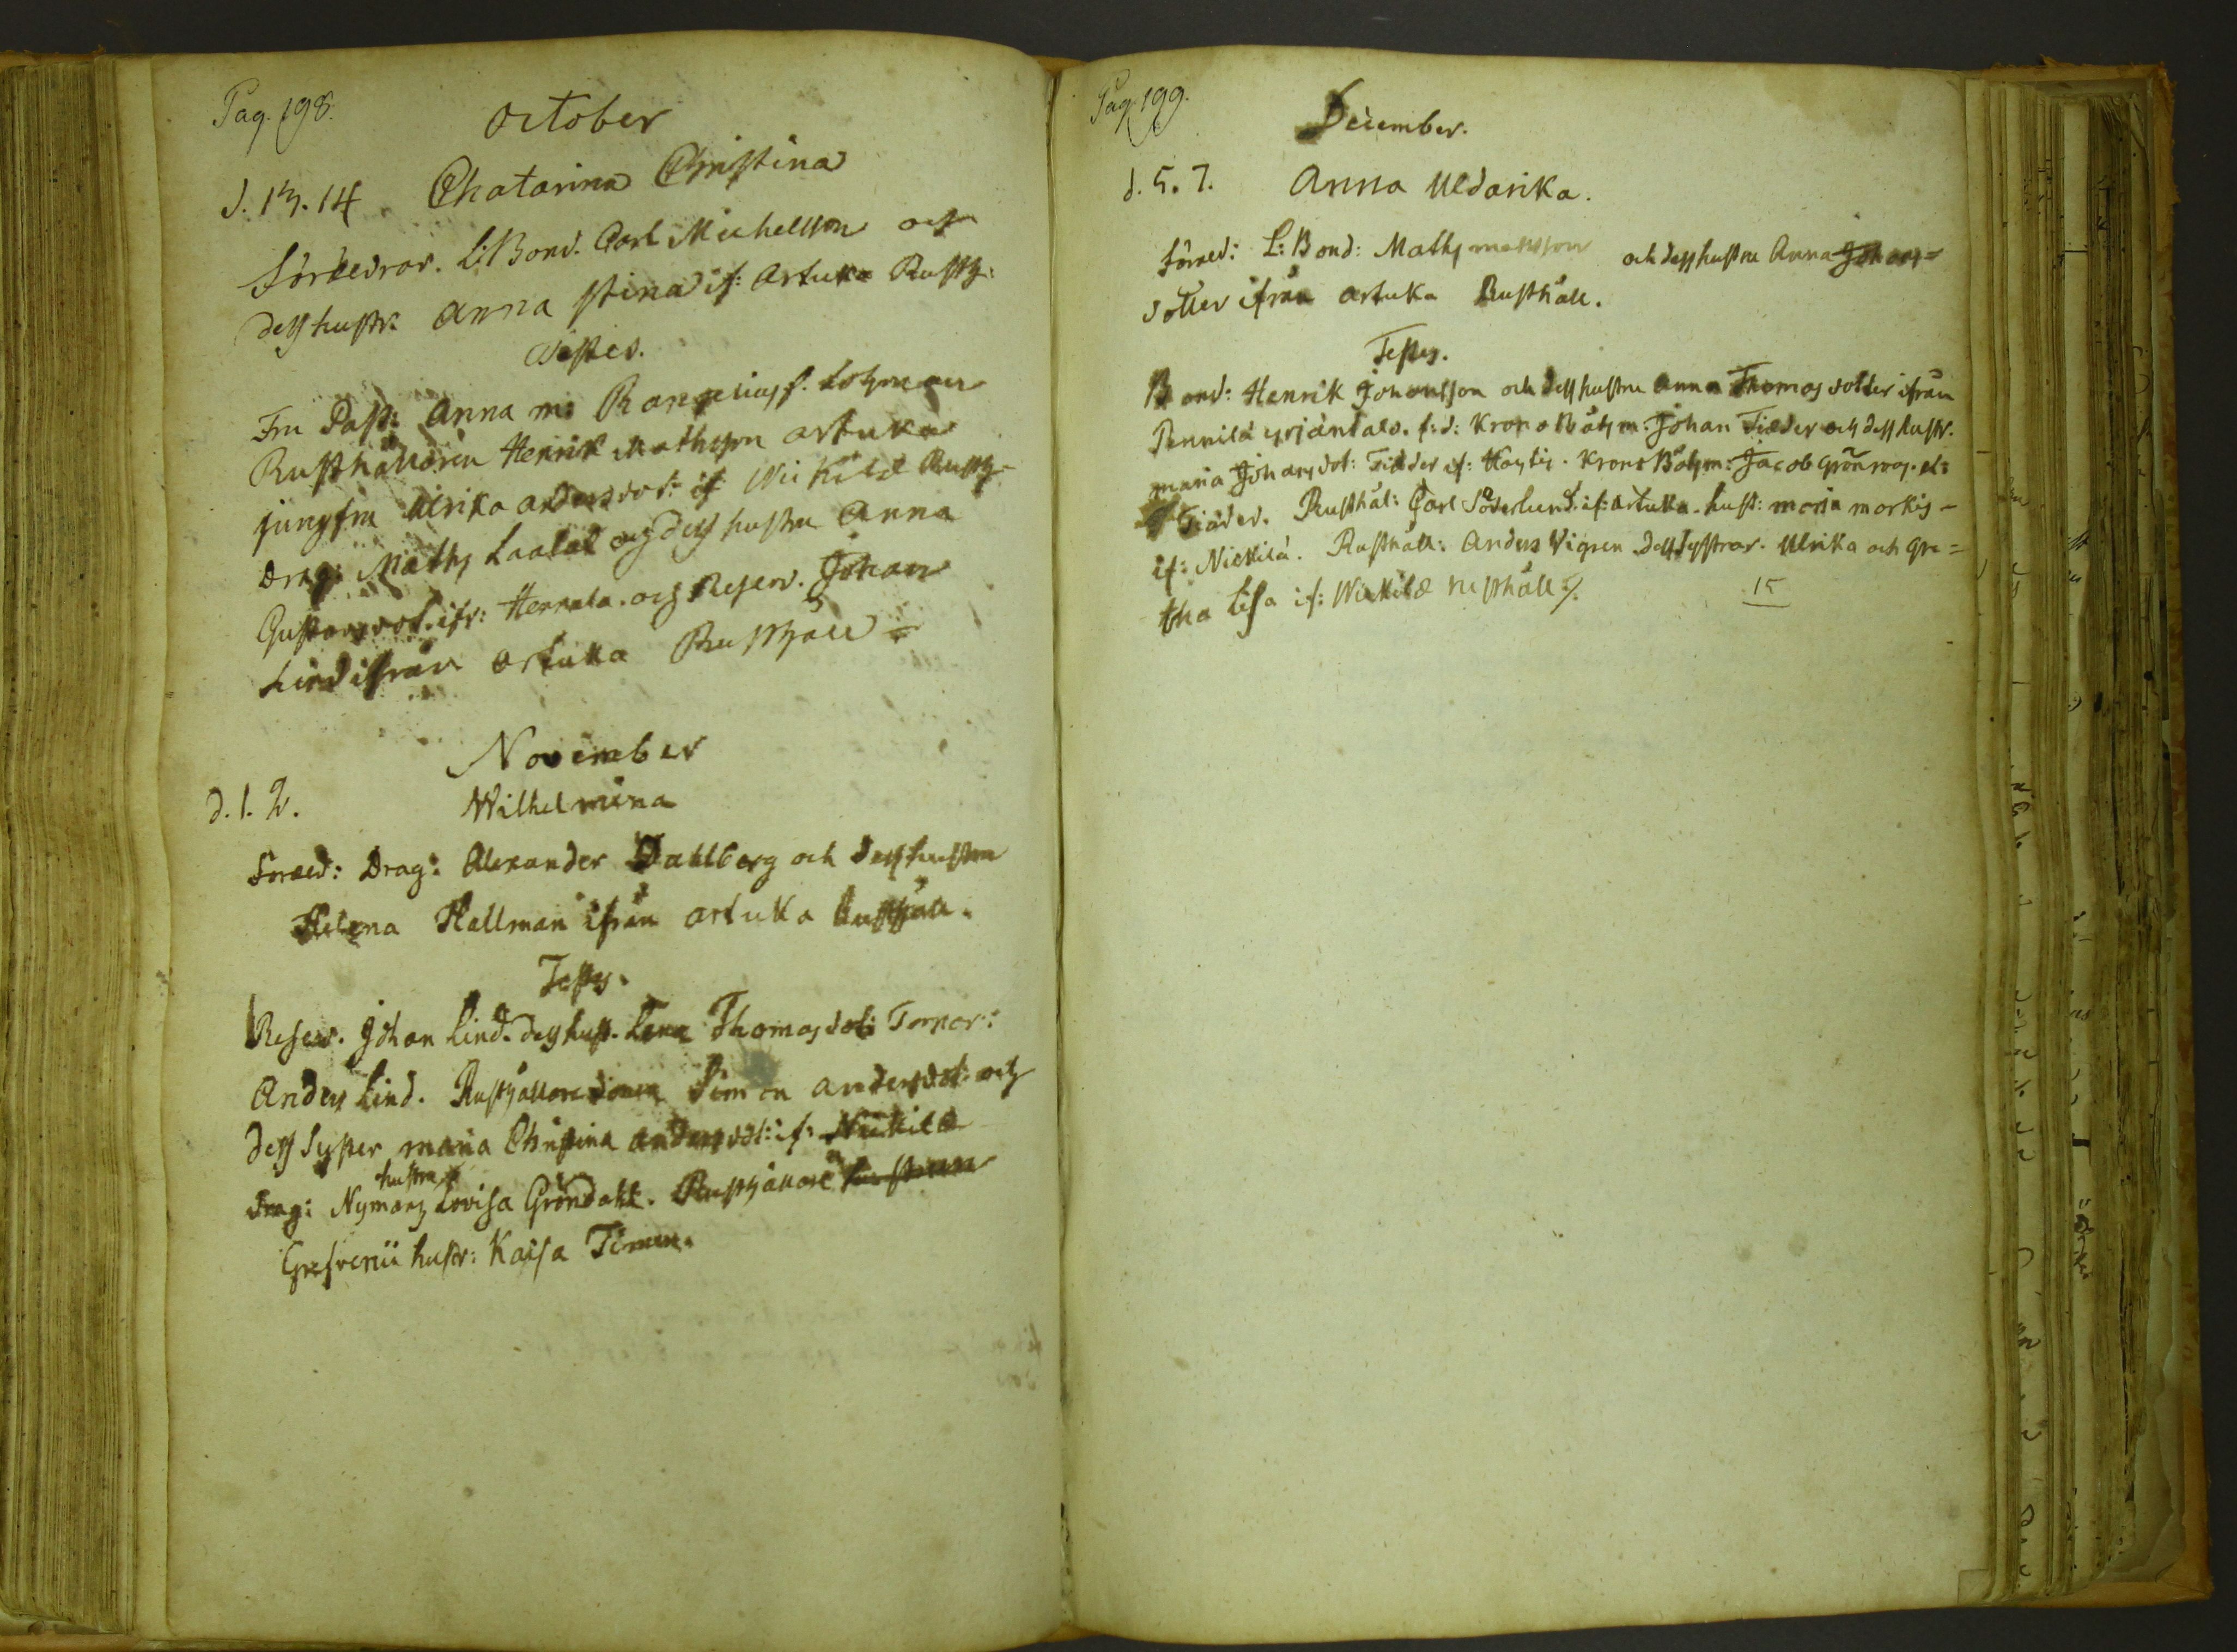 Pag. 198.
October
d. 13. 14 Chatarina Christina
Föräldrar. L: Bond. Carl Michellson och
dess hustr. Anna Stina if: Artuka Rusth:
Testes.
Fru Past: Anna m:
Rusthållaren Henrik Mathsson Artuka
jungfru Ulrika andersdot: if Nickilä Rusth-
Drag: Maths Laalal och dess hustru Anna
Gustavsdot. ifr: Hennala. och Reserv. Johan
Lind ifrån Artuka Rusthåll
November
d. 1. 2. Wilhelmina
Foræld: Drag: Alexander Dahlberg och dess hustru
Helena Hallman ifrån artuka Rusthåll.
Testes.
Reserv. Johan Lind. dess hust. Lena Thomasdot: Torpar:
Anders Lind. Rusthållare Simon andersdot: och
dess Syster maria Christina andersdot: if: Nickilä
hustru
Drag: Nymans Lovisa Gröndahl. Rusthållare hustrun
hustr: Kaisa Timen.
Pag. 199.
December.
d. 5. 7. Anna Uldarika.
föræld: L: Bond: Maths matsson och dess hustru Anna Johans=
dotter ifrån Artuka Rusthåll.
Testes.
Bond: Henrik Johansson och dess hustru Anna Thomas dotter ifrån
Pennilä f: d: Krono Båtsm: Johan Tiäder och dess hustr.
maria Johansdot: Tiäder if: Krono Båtsm: Jacob Grönroos.
Tiäder. Rusthål: Carl Söderlund. if: Artuka. hust: maria
if: Nickilä. Rusthåll: Anders Vigren. dess Systrar. Ulrika och Gre=
tha Lisa if: Nickilä rusthåll ./.
15